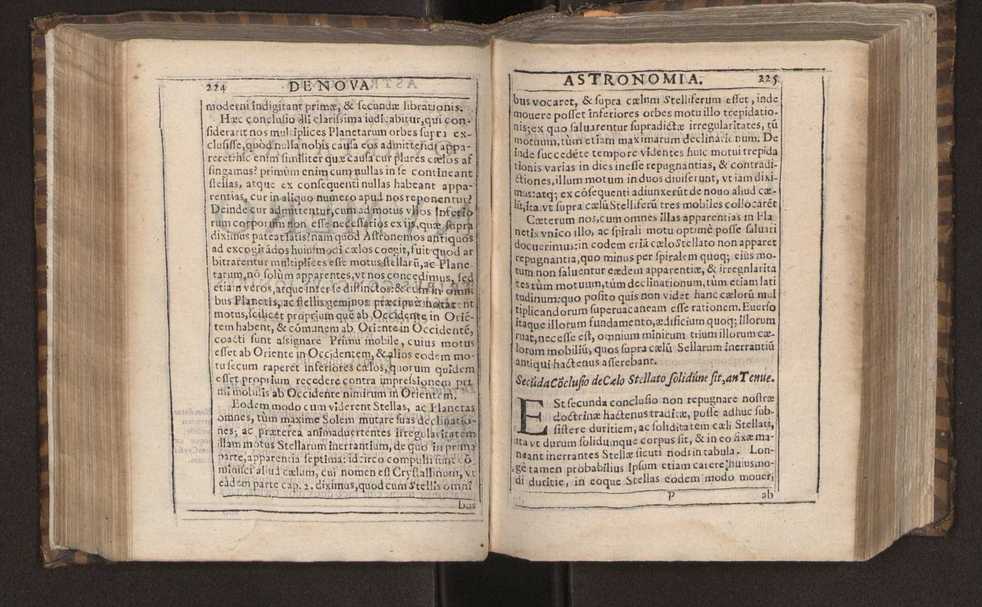 224 DE NOVA
moderni indigitant primæ, & secundæ librationis.
Hæc conclusio illi clarissima iudicabitur, qui con-
siderarit nos multiplices Planetarum orbes supra ex-
clusisse, quòd nulla nobis causa eos admittendi appa-
reret: hîc enim similiter quæ causa cur plures cælos af
singamus? primùm enim cum nullas in se contineant
stellas, atque ex consequenti nullas habeant appa-
rentias, cur in aliquo numero apud nos reponentur?
Deinde cur admittentur, cum ad motus veros inferio
rum corporum non esse necessarios ex ijs, quæ supra
diximus pateat satis: nam quod Astronomos antiquos
ad excogitādos huiusmodi cælos coegit, fuit quod ar
bitrarentur multiplices esse motus stellarū, ac Plane-
tarum, nō solùm apparentes, vt nos concedimus, sed
etiam veros, atque inter se distinctos: & cum in omni
bus Planetis, ac stellis geminos præcipuè
motus, scilicet proprium quē ab Occidente in Oriē-
tem habent, & cōmunem ab Oriente in Occidentē,
coacti sunt assignare Primū mobile, cuius motus
esset ab Oriente in Occidentem, & alios eodem mo-
tu secum raperet inferiores cælos, quorum quidem
esset proprium recedere contra impressionem pri
mi mobilis ab Occidente nimirum in Orientem.
Eodem modo cum viderent Stellas, ac Planetas
omnes, tùm maxime Solem mutare suas declinatio-
nes; ac præterea animaduertentes irregularitatem
illam motus Stellarum inerrantium, de quo in prima
parte, apparentia septima: idcirco compulsi sunt cō-
minisci aliud cælum, cui nomen est Crystallinum, vt
eàdem parte cap. 2. diximus, quod cum Stellis omni
bus
ASTRONOMIA. 225
bus vocaret, & supra cælum Stelliferum esset, inde
mouere posset inferiores orbes motu illo trepidatio-
nis; ex quo saluarentur supradictæ irregularitates, tū
motuum, tùm etiam maximarum declinationum. De
inde succedēte tempore videntes huic motui trepida
tionis varias in dies inesse repugnantias, & contradi-
ctiones, illum motum in duos diuiserunt, vt iam dixi-
mus: atq; ex cōsequēti adiunxerūt de nouo aliud cæ-
lū, ita vt supra cælū Stelliferū tres mobiles collocarēt
Cæterum nos, cum omnes illas apparentias in Pla
netis vnico illo, ac spirali motu optimè posse saluari
docuerimus: in eodem etiā cælo Stellato non apparet
repugnantia, quo minus per spiralem quoq; eius mo-
tum non saluentur eædem apparentiæ, & irregularita
tes tùm motuum, tùm declinationum, tùm etiam lati
tudinum: quo posito quis non videt hanc cælorū mul
tiplicandorum superuacaneam esse rationem. Euerso
itaque illorum fundamento, ædificium quoq; illorum
ruat, necesse est, omnium nimirum trium illorum cæ-
lorum mobiliū, quos supra cælū Stellarum inerrantiū
antiqui hactenus asserebant.
Secūda Cōclusio de Cælo Stellato solidūne sit, an Tenue.
ESt secunda conclusio non repugnare nostræ
doctrinæ hactenus traditæ, posse adhuc sub-
sistere duritiem, ac soliditatem cæli Stellati,
ita vt durum solidumque corpus sit, & in eo fixæ ma-
neant inerrantes Stellæ sicuti nodi in tabula. Lon-
gè tamen probabilius ipsum etiam carere huiusmo-
di duritie, in eoque Stellas eodem modo moueri,
P ab